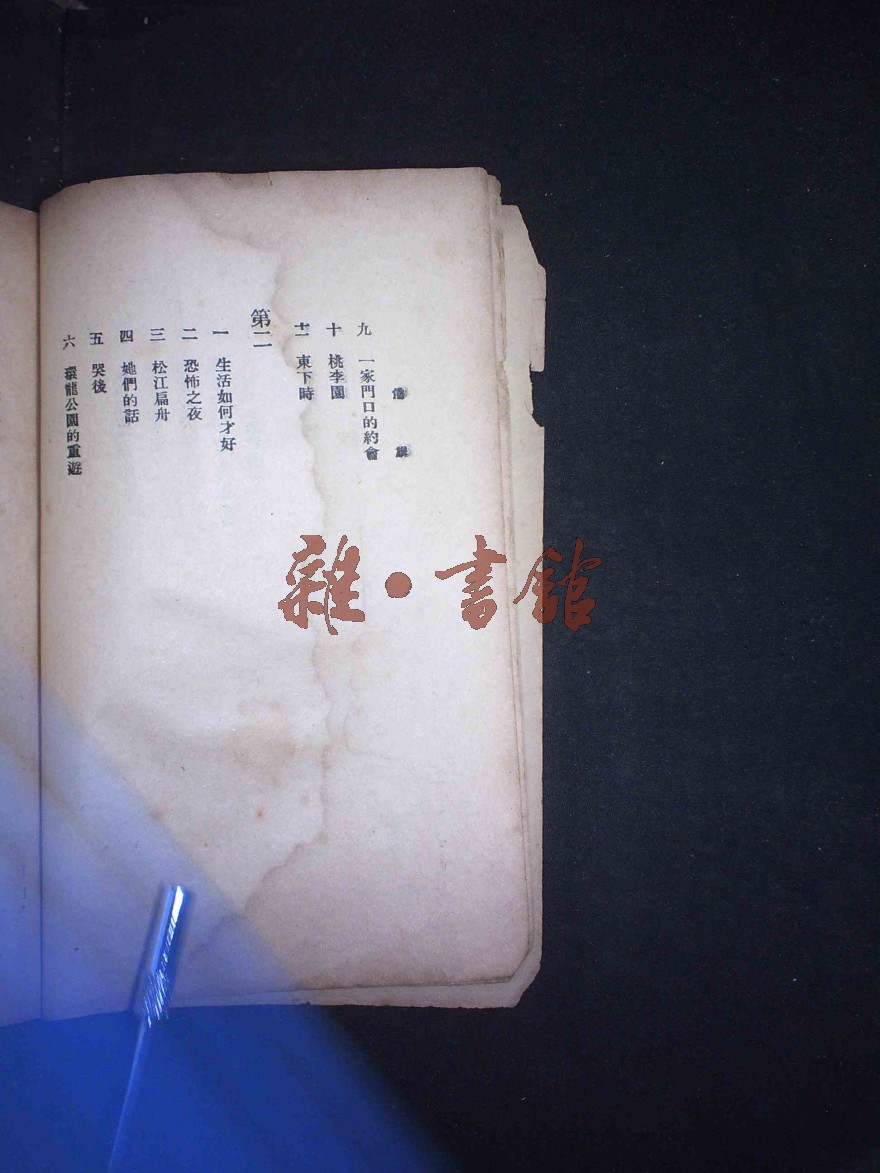 倦旅
九 一家門口的約會
十 桃李園
十一 東下時
第二
一 生活如何才好
二 恐怖之夜
三 松江扁舟
四 她們的話
五 哭後
六 環龍公園的重遊
雜·書館